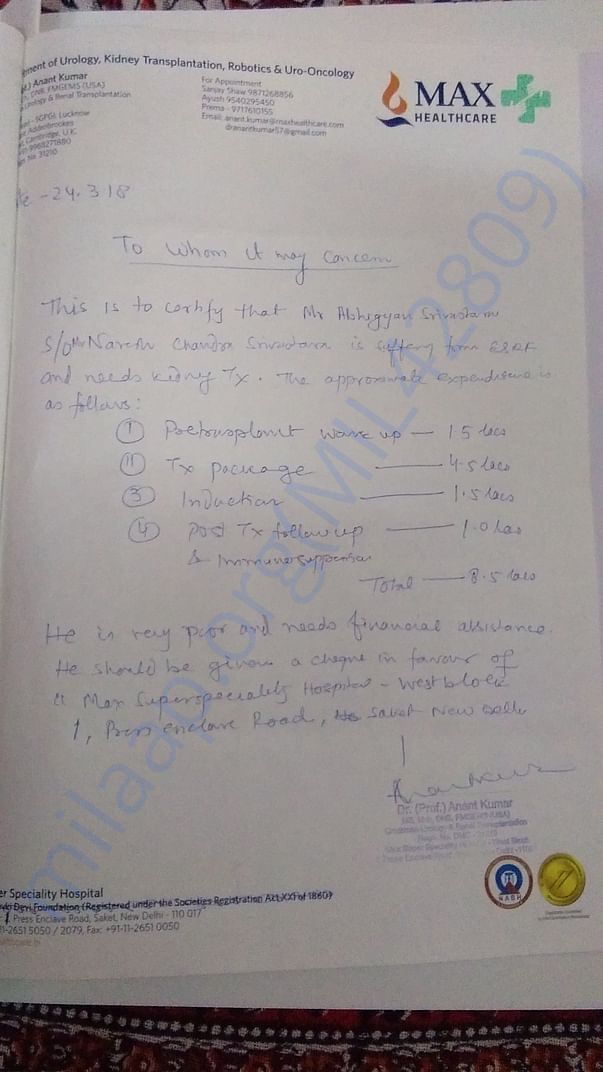 ment of Urology, Kidney Transplantation, Robotics & Uro-Oncology
f.) Anant Kumar
DNB, FMGEMS (USA)
Urology & Renal Transplantation
SGPGI, Lucknow
Addenbrookes
Cambridge, U.K.
9968271880
No 31210
For Appointment
Sanjay Shaw 9871268856
Ayush 9540295450
Prema - 9717610155
Email: anant.kumar@maxhealthcare.com
dranantkumar57@gmail.com
MAX
HEALTHCARE
te - 24.3.18
To Whom it may concern
This is to certify that Mr Abhigyan Srivastava
S/o Mr Naresh Chandra Srivastava is suffering from ESRF
and needs kidney Tx. The approximate expenditure is
as follows:
① Pretransplant work up — 1.5 lacs
② Tx package — 4.5 lacs
③ Induction — 1.5 lacs
④ Post Tx follow up — 1.0 lac
& Immunosuppression
Total — 8.5 lacs
He is very poor and needs financial assistance.
He should be given a cheque in favour of
" Max Superspeciality Hospital - West block
1, Press enclave Road, Saket New Delhi
Dr. (Prof.) Anant Kumar
er Speciality Hospital
Devi Foundation (Registered under the Societies Registration Act XXI of 1860)
1 Press Enclave Road, Saket, New Delhi - 110 017
11-2651 5050 / 2079, Fax: +91-11-2651 0050
NABH
milaap.org(MIL42809)